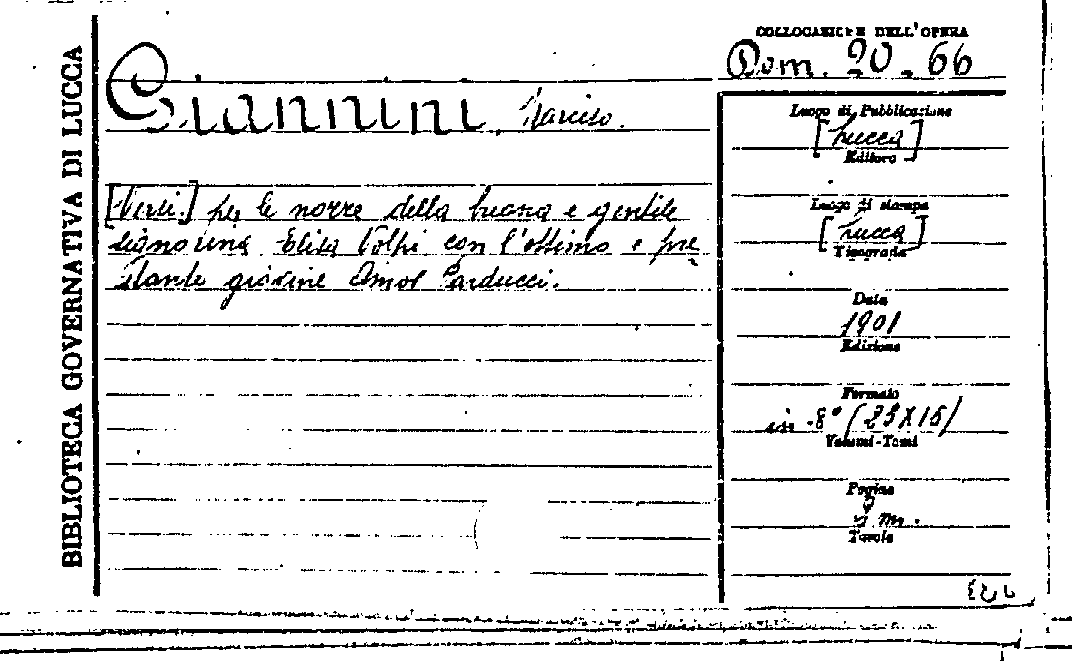 BIBLIOTECA GOVERNATIVA DI LUCCA
COLLOCAZIONE DELL'OPERA
Dom. 20. 66
Giannini, Narciso.
[Versi.] per le nozze della buona e gentile
signorina Elisa Volpi con l'ottimo e pre
stante giovine Amos Parducci.
Luogo di Pubblicazione
[Lucca]
Editore
Luogo di stampa
[Lucca]
Tipografia
Data
1901
Edizione
Formato
in-8° (23X15)
Volumi-Tomi
Pagine
Tavole